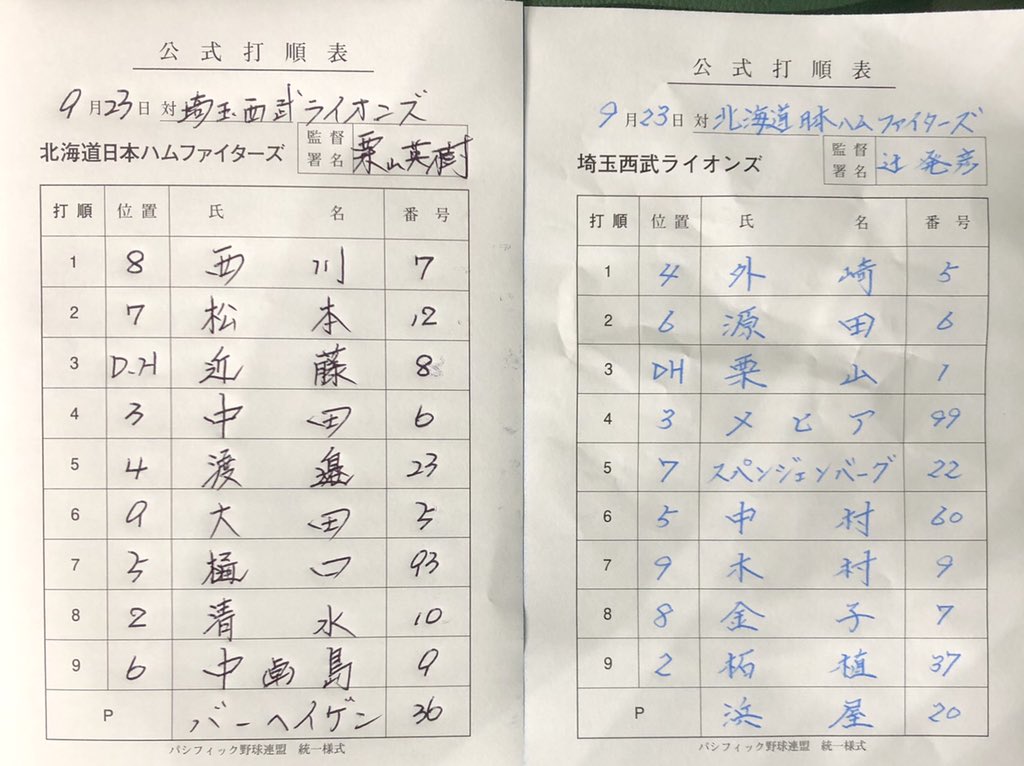 公式打順表
9月23日 対 埼玉西武ライオンズ
北海道日本ハムファイターズ 監督署名 栗山英樹
打順 位置 氏名 番号
1 8 西川 7
2 7 松本 12
3 D.H 近藤 8
4 3 中田 6
5 4 渡邉 23
6 9 大田 5
7 5 樋口 93
8 2 清水 10
9 6 中島 9
P バーヘイゲン 36
パシフィック野球連盟 統一様式
公式打順表
9月23日 対 北海道日本ハムファイターズ
埼玉西武ライオンズ 監督署名 辻発彦
打順 位置 氏名 番号
1 4 外崎 5
2 6 源田 6
3 DH 栗山 1
4 3 メヒア 99
5 7 スパンジェンバーグ 22
6 5 中村 60
7 9 木村 9
8 8 金子 7
9 2 柘植 37
P 浜屋 20
パシフィック野球連盟 統一様式